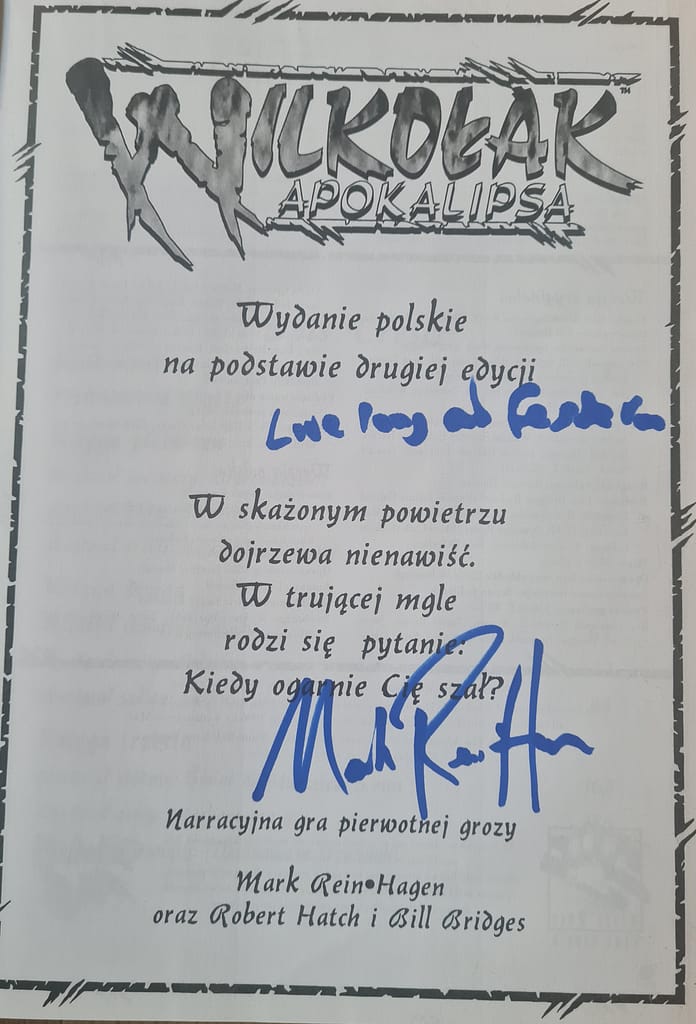 WILKOŁAK™
APOKALIPSA
Wydanie polskie
na podstawie drugiej edycji
Live long and
W skażonym powietrzu
dojrzewa nienawiść.
W trującej mgle
rodzi się pytanie:
Kiedy ogarnie Cię szał?
Mark Rein Hagen
Narracyjna gra pierwotnej grozy
Mark Rein•Hagen
oraz Robert Hatch i Bill Bridges